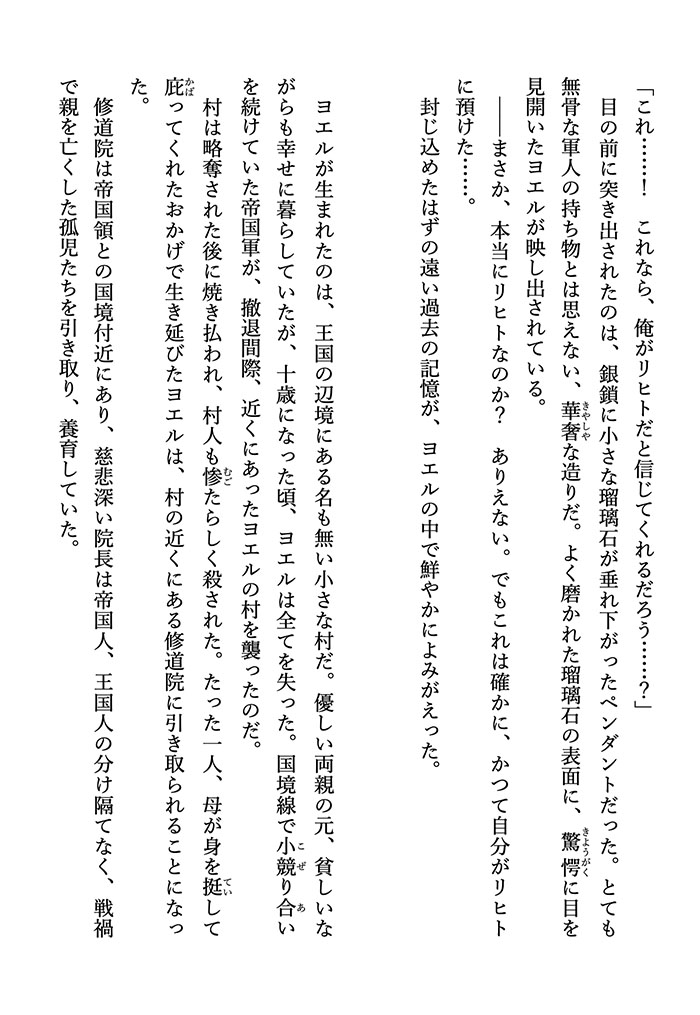 「これ……！　これなら、俺がリヒトだと信じてくれるだろう……？」
　目の前に突き出されたのは、銀鎖に小さな瑠璃石が垂れ下がったペンダントだった。とても
無骨な軍人の持ち物とは思えない、華奢な造りだ。よく磨かれた瑠璃石の表面に、驚愕に目を
見開いたヨエルが映し出されている。
　――まさか、本当にリヒトなのか？　ありえない。でもこれは確かに、かつて自分がリヒト
に預けた……。
　封じ込めたはずの遠い過去の記憶が、ヨエルの中で鮮やかによみがえった。
　ヨエルが生まれたのは、王国の辺境にある名も無い小さな村だ。優しい両親の元、貧しいな
がらも幸せに暮らしていたが、十歳になった頃、ヨエルは全てを失った。国境線で小競り合い
を続けていた帝国軍が、撤退間際、近くにあったヨエルの村を襲ったのだ。
　村は略奪された後に焼き払われ、村人も惨たらしく殺された。たった一人、母が身を挺して
庇ってくれたおかげで生き延びたヨエルは、村の近くにある修道院に引き取られることになっ
た。
　修道院は帝国領との国境付近にあり、慈悲深い院長は帝国人、王国人の分け隔てなく、戦禍
で親を亡くした孤児たちを引き取り、養育していた。